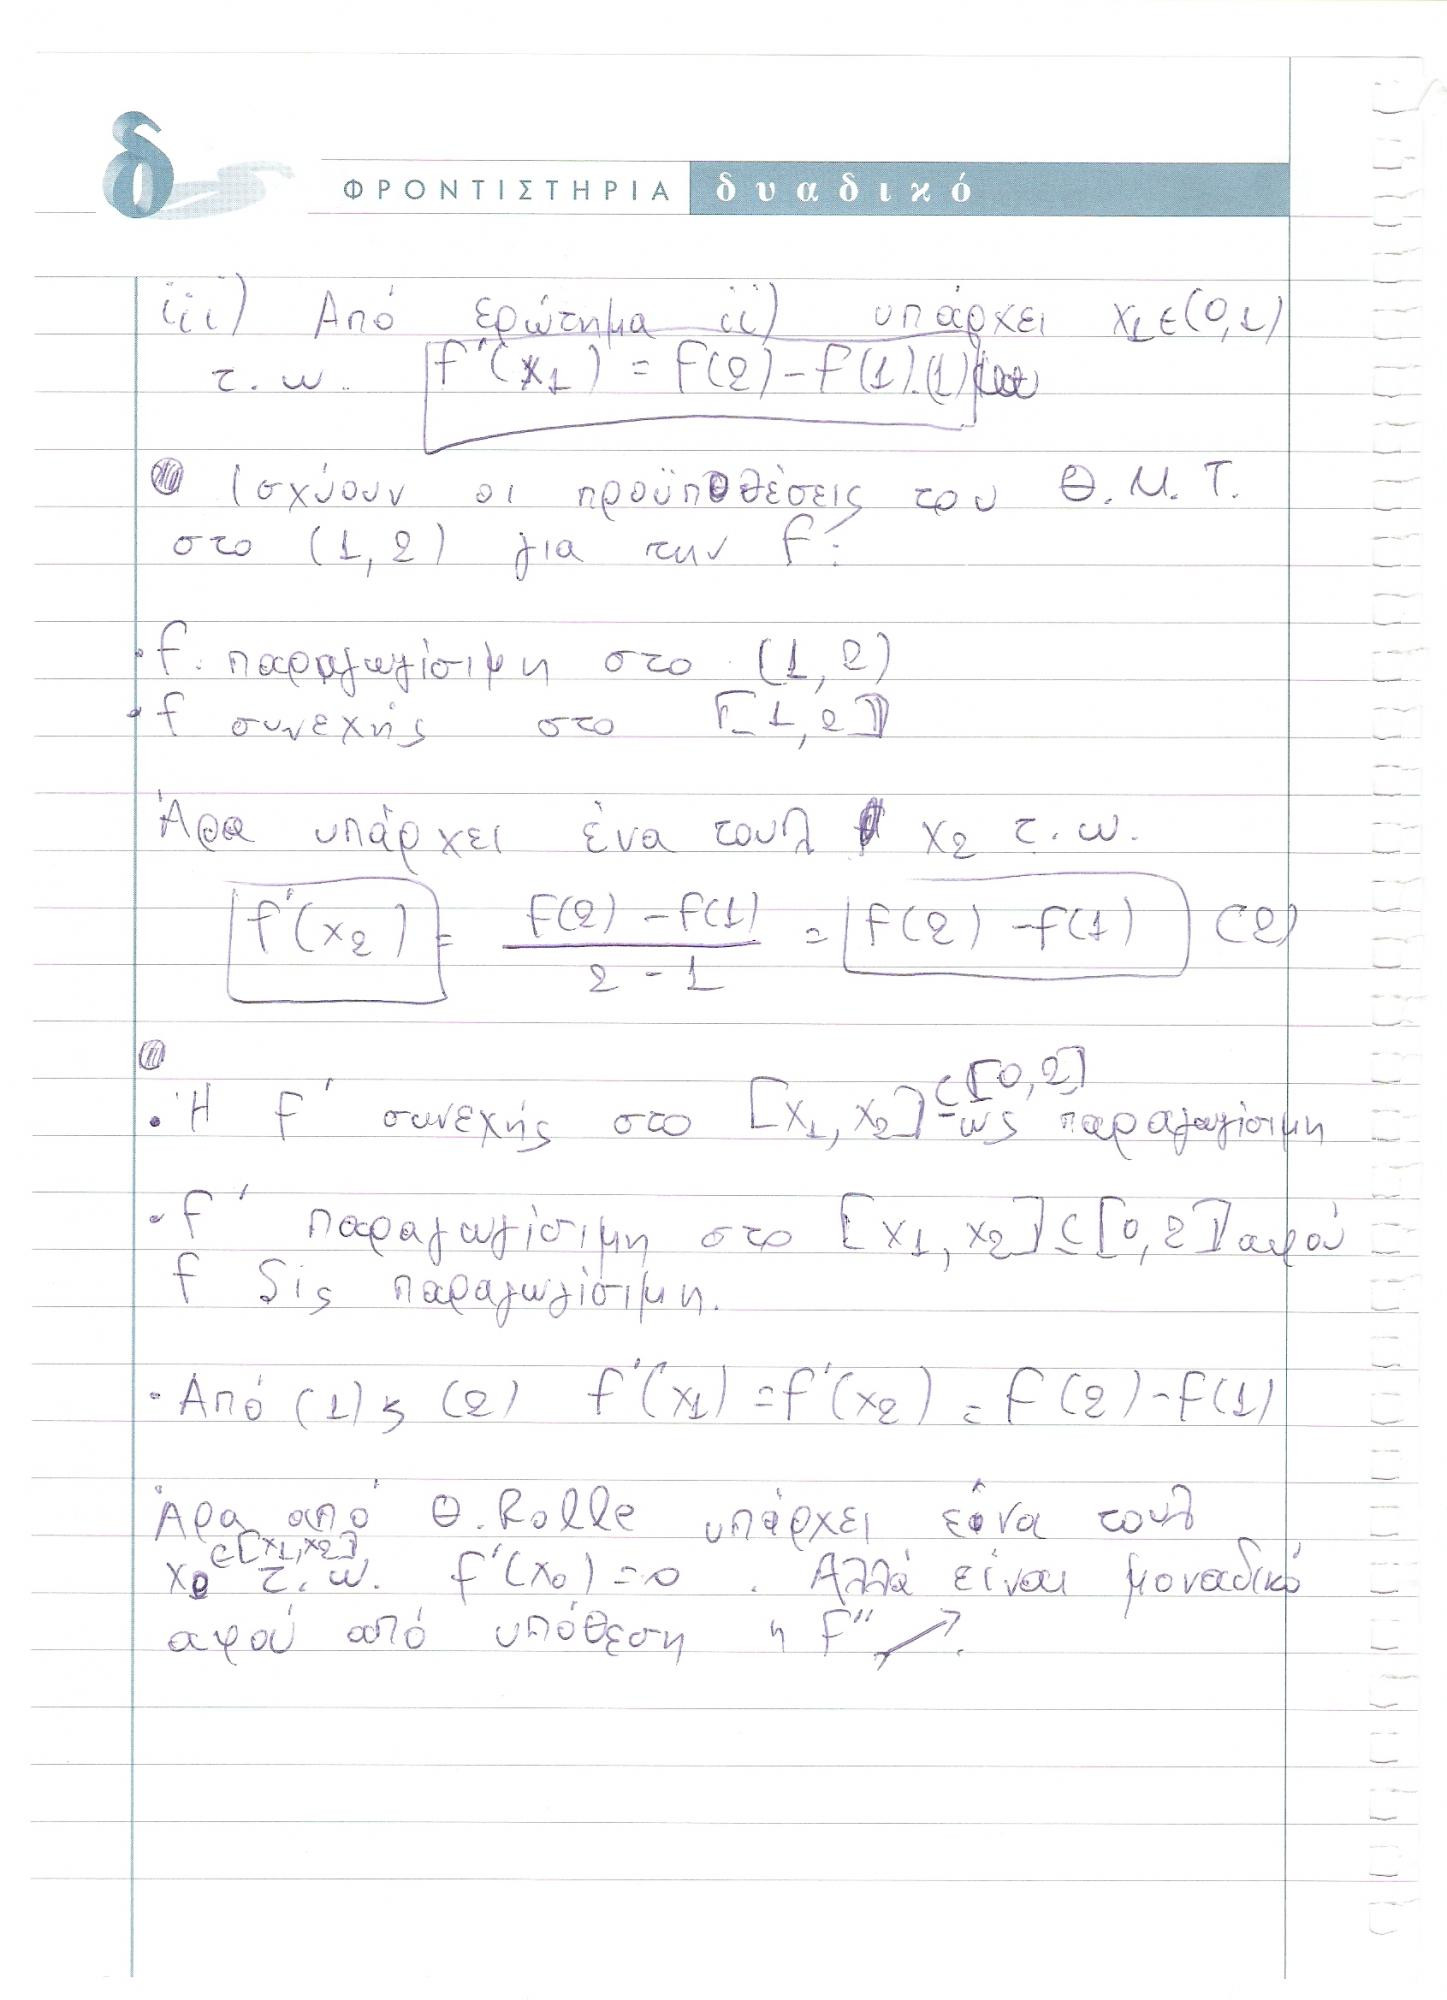 δ
ΦΡΟΝΤΙΣΤΗΡΙΑ δυαδικό
iii) Από ερώτημα ii) υπάρχει x₁∈(0,1)
τ.ω. f'(x₁) = f(2) - f(1) . (1)
Ισχύουν οι προϋποθέσεις του Θ.Μ.Τ.
στο (1,2) για την f:
· f. παραγωγίσιμη στο (1,2)
· f συνεχής στο [1,2]
Άρα υπάρχει ένα τουλ x₂ τ.ω.
f'(x₂) = f(2) - f(1) / 2 - 1 = f(2) - f(1) (2)
· Η f' συνεχής στο [x₁, x₂] ⊆ [0,2] ως παραγωγίσιμη
· f' παραγωγίσιμη στο [x₁, x₂] ⊆ [0,2] αφού
f δις παραγωγίσιμη.
· Από (1) ϗ (2) f'(x₁) = f'(x₂) = f(2) - f(1)
Άρα από Θ. Rolle υπάρχει ένα τουλ
x₀ ∈ [x₁, x₂] τ.ω. f''(x₀) = 0 . Αλλά είναι μοναδικό
αφού από υπόθεση η f'' ↗.